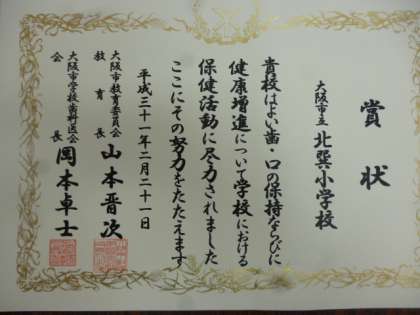 賞状
大阪市立 北巽小学校
貴校はよい歯・口の保持ならびに
健康増進について学校における
保健活動に尽力されました
ここにその努力をたたえます
平成三十一年二月二十一日
大阪市教育委員会
教育長 山本晋次
大阪市学校歯科医会
会長 岡本卓士